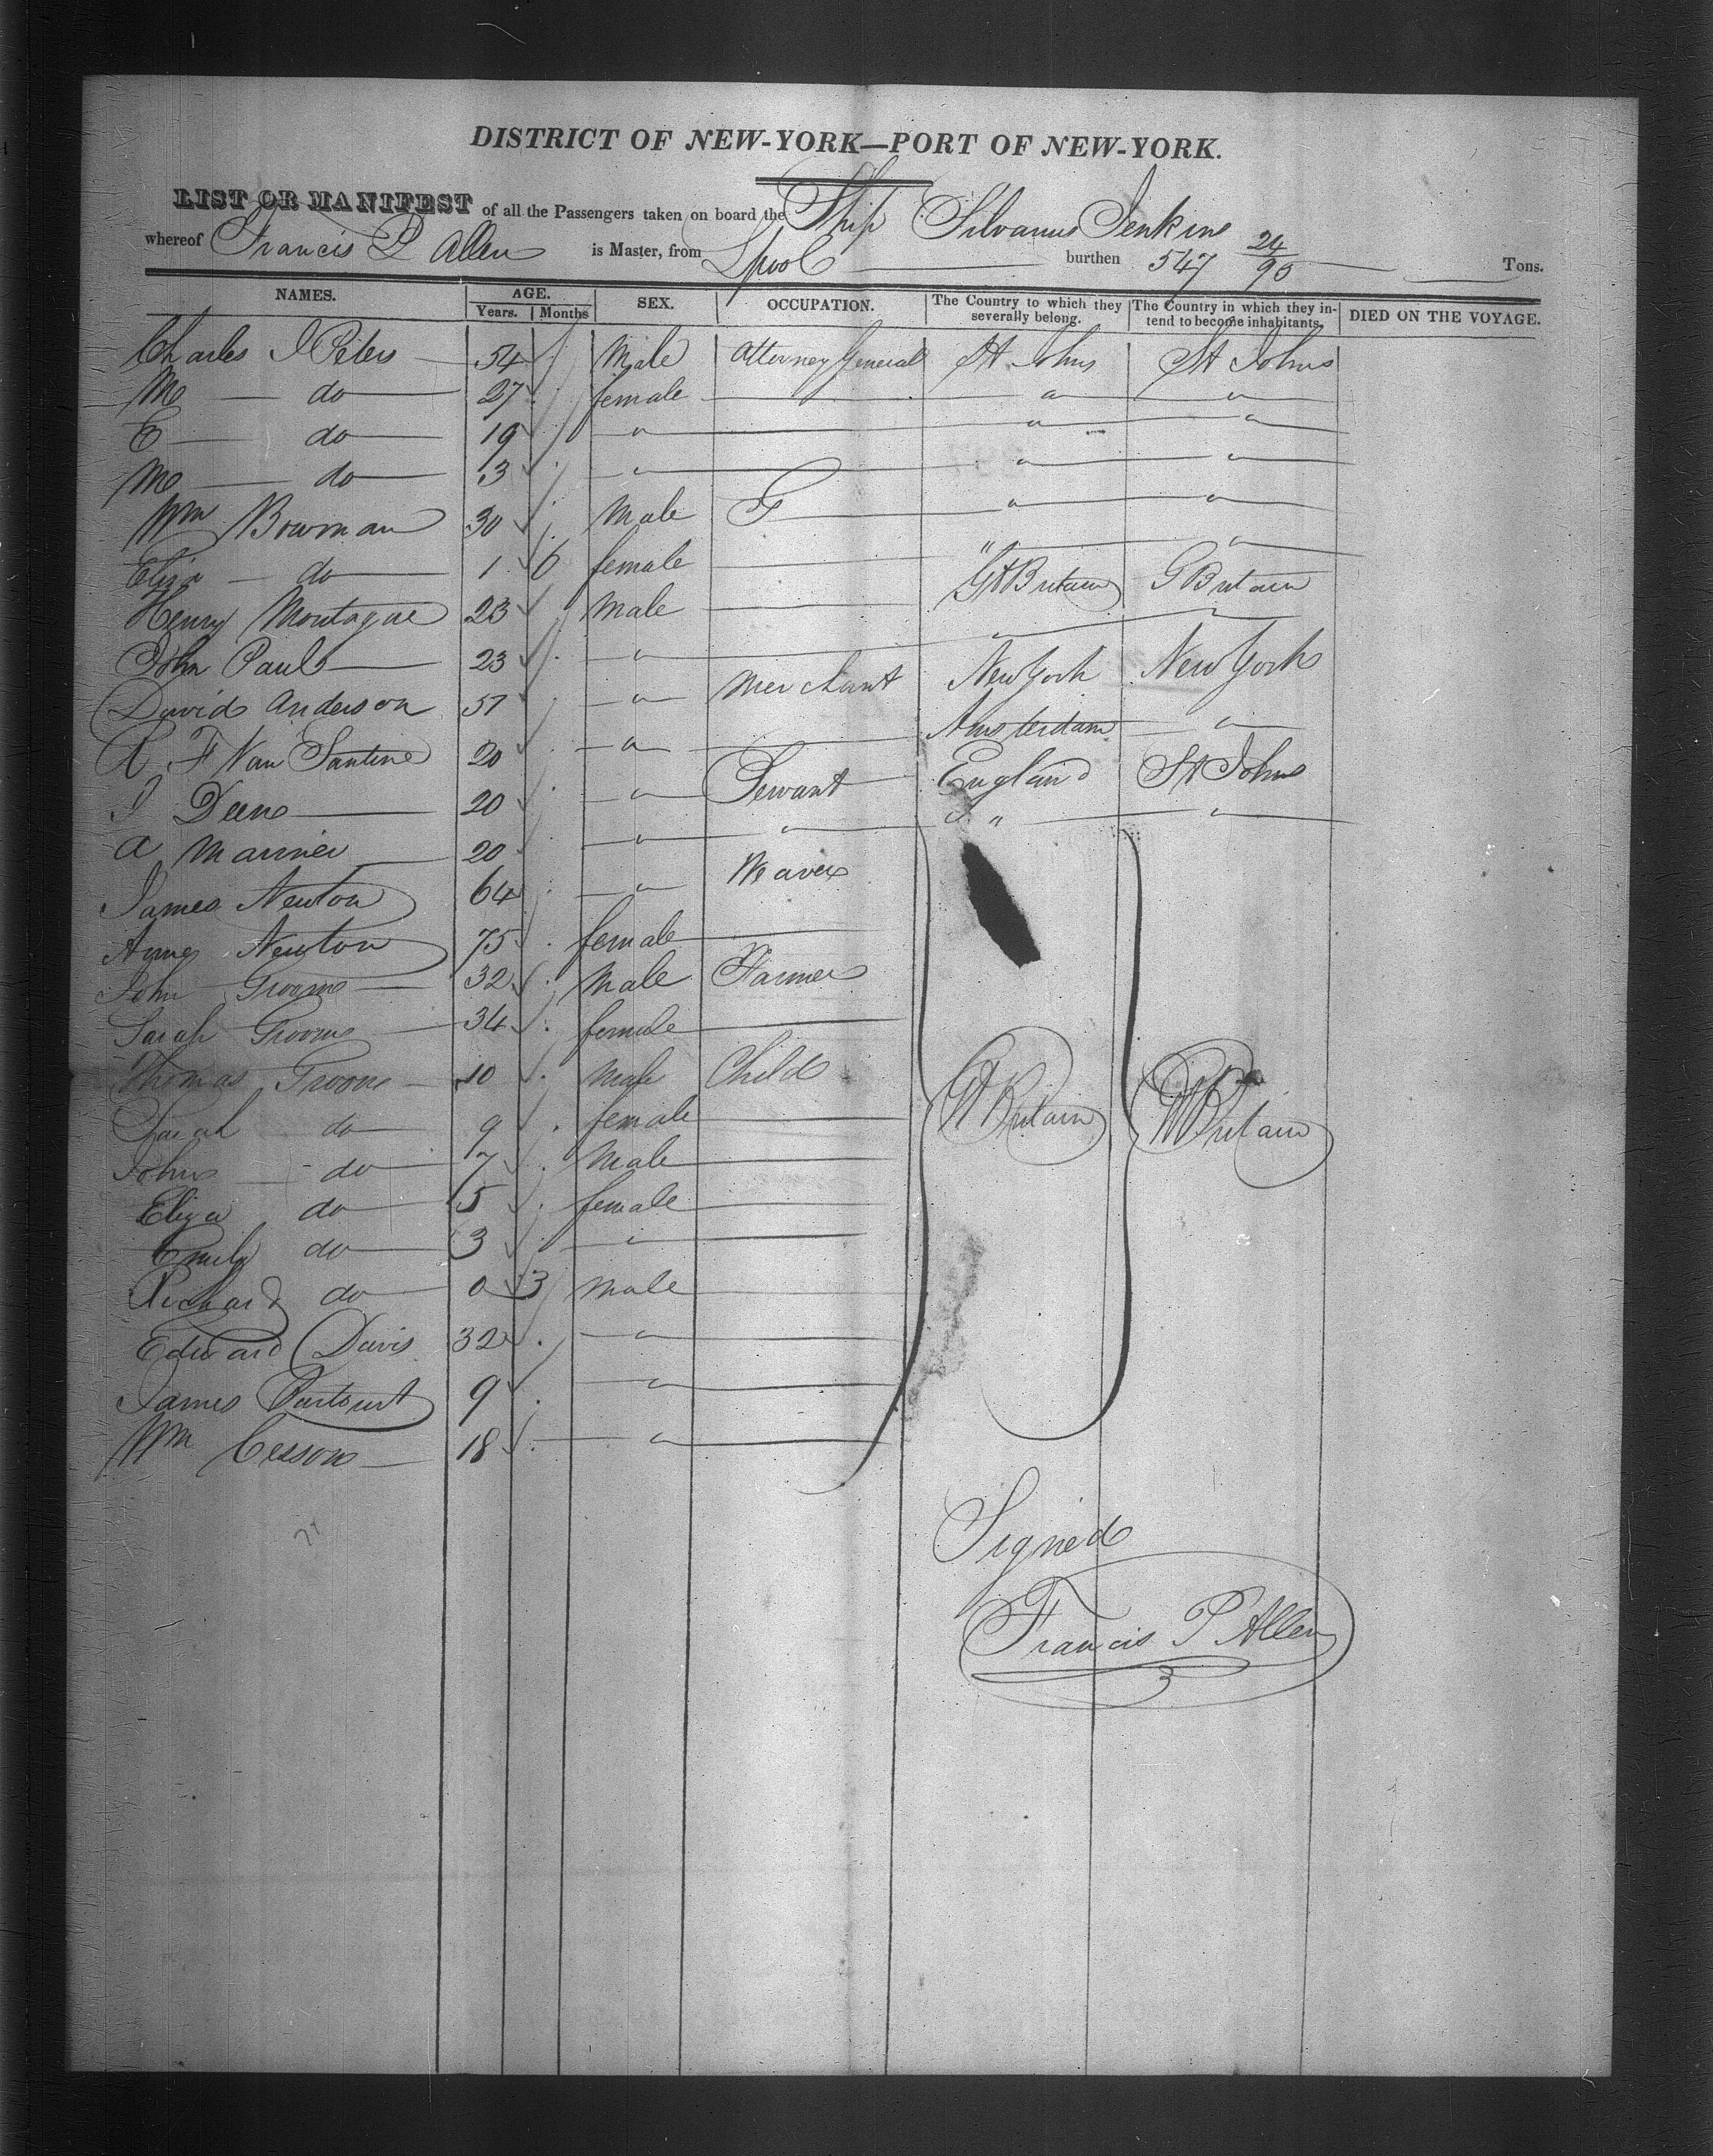 DISTRICT OF NEW-YORK—PORT OF NEW-YORK.
LIST OR MANIFEST of all the Passengers taken on board the Ship Silvanus Jenkins
whereof Francis P Allen is Master, from Lpool burthen 547 24/95 Tons.
NAMES. AGE. Years. Months SEX. OCCUPATION. The Country to which they severally belong. The Country in which they intend to become inhabitants. DIED ON THE VOYAGE.
Charles J Peters 54 Male Attorney General St Johns St Johns
M do 27 female " "
E do 19 " " "
M do 3 " " "
Wm Bowman 30 Male G " "
Eliza do 1 6 female " "
Henry Montague 23 Male Gt Britain G Britain
John Paul 23 " " "
David Anderson 57 " Merchant New York New York
F Van Santine 20 " Amsterdam "
J Deene 20 " Servant England St Johns
A Marinei 20 " " " "
James Newton 64 " Weaver
Newton 75 female
John Groome 32 Male Farmer
Sarah Groome 34 female
Thomas Groome 10 Male Child Gt Britain Gt Britain
Sarah do 9 female
John do 7 Male
Eliza do 5 female
Emily do 3 "
Richard do 0 3 Male
Edward Davis 32 "
James 9 "
Wm Cessons 18 "
Signed
Francis P Allen